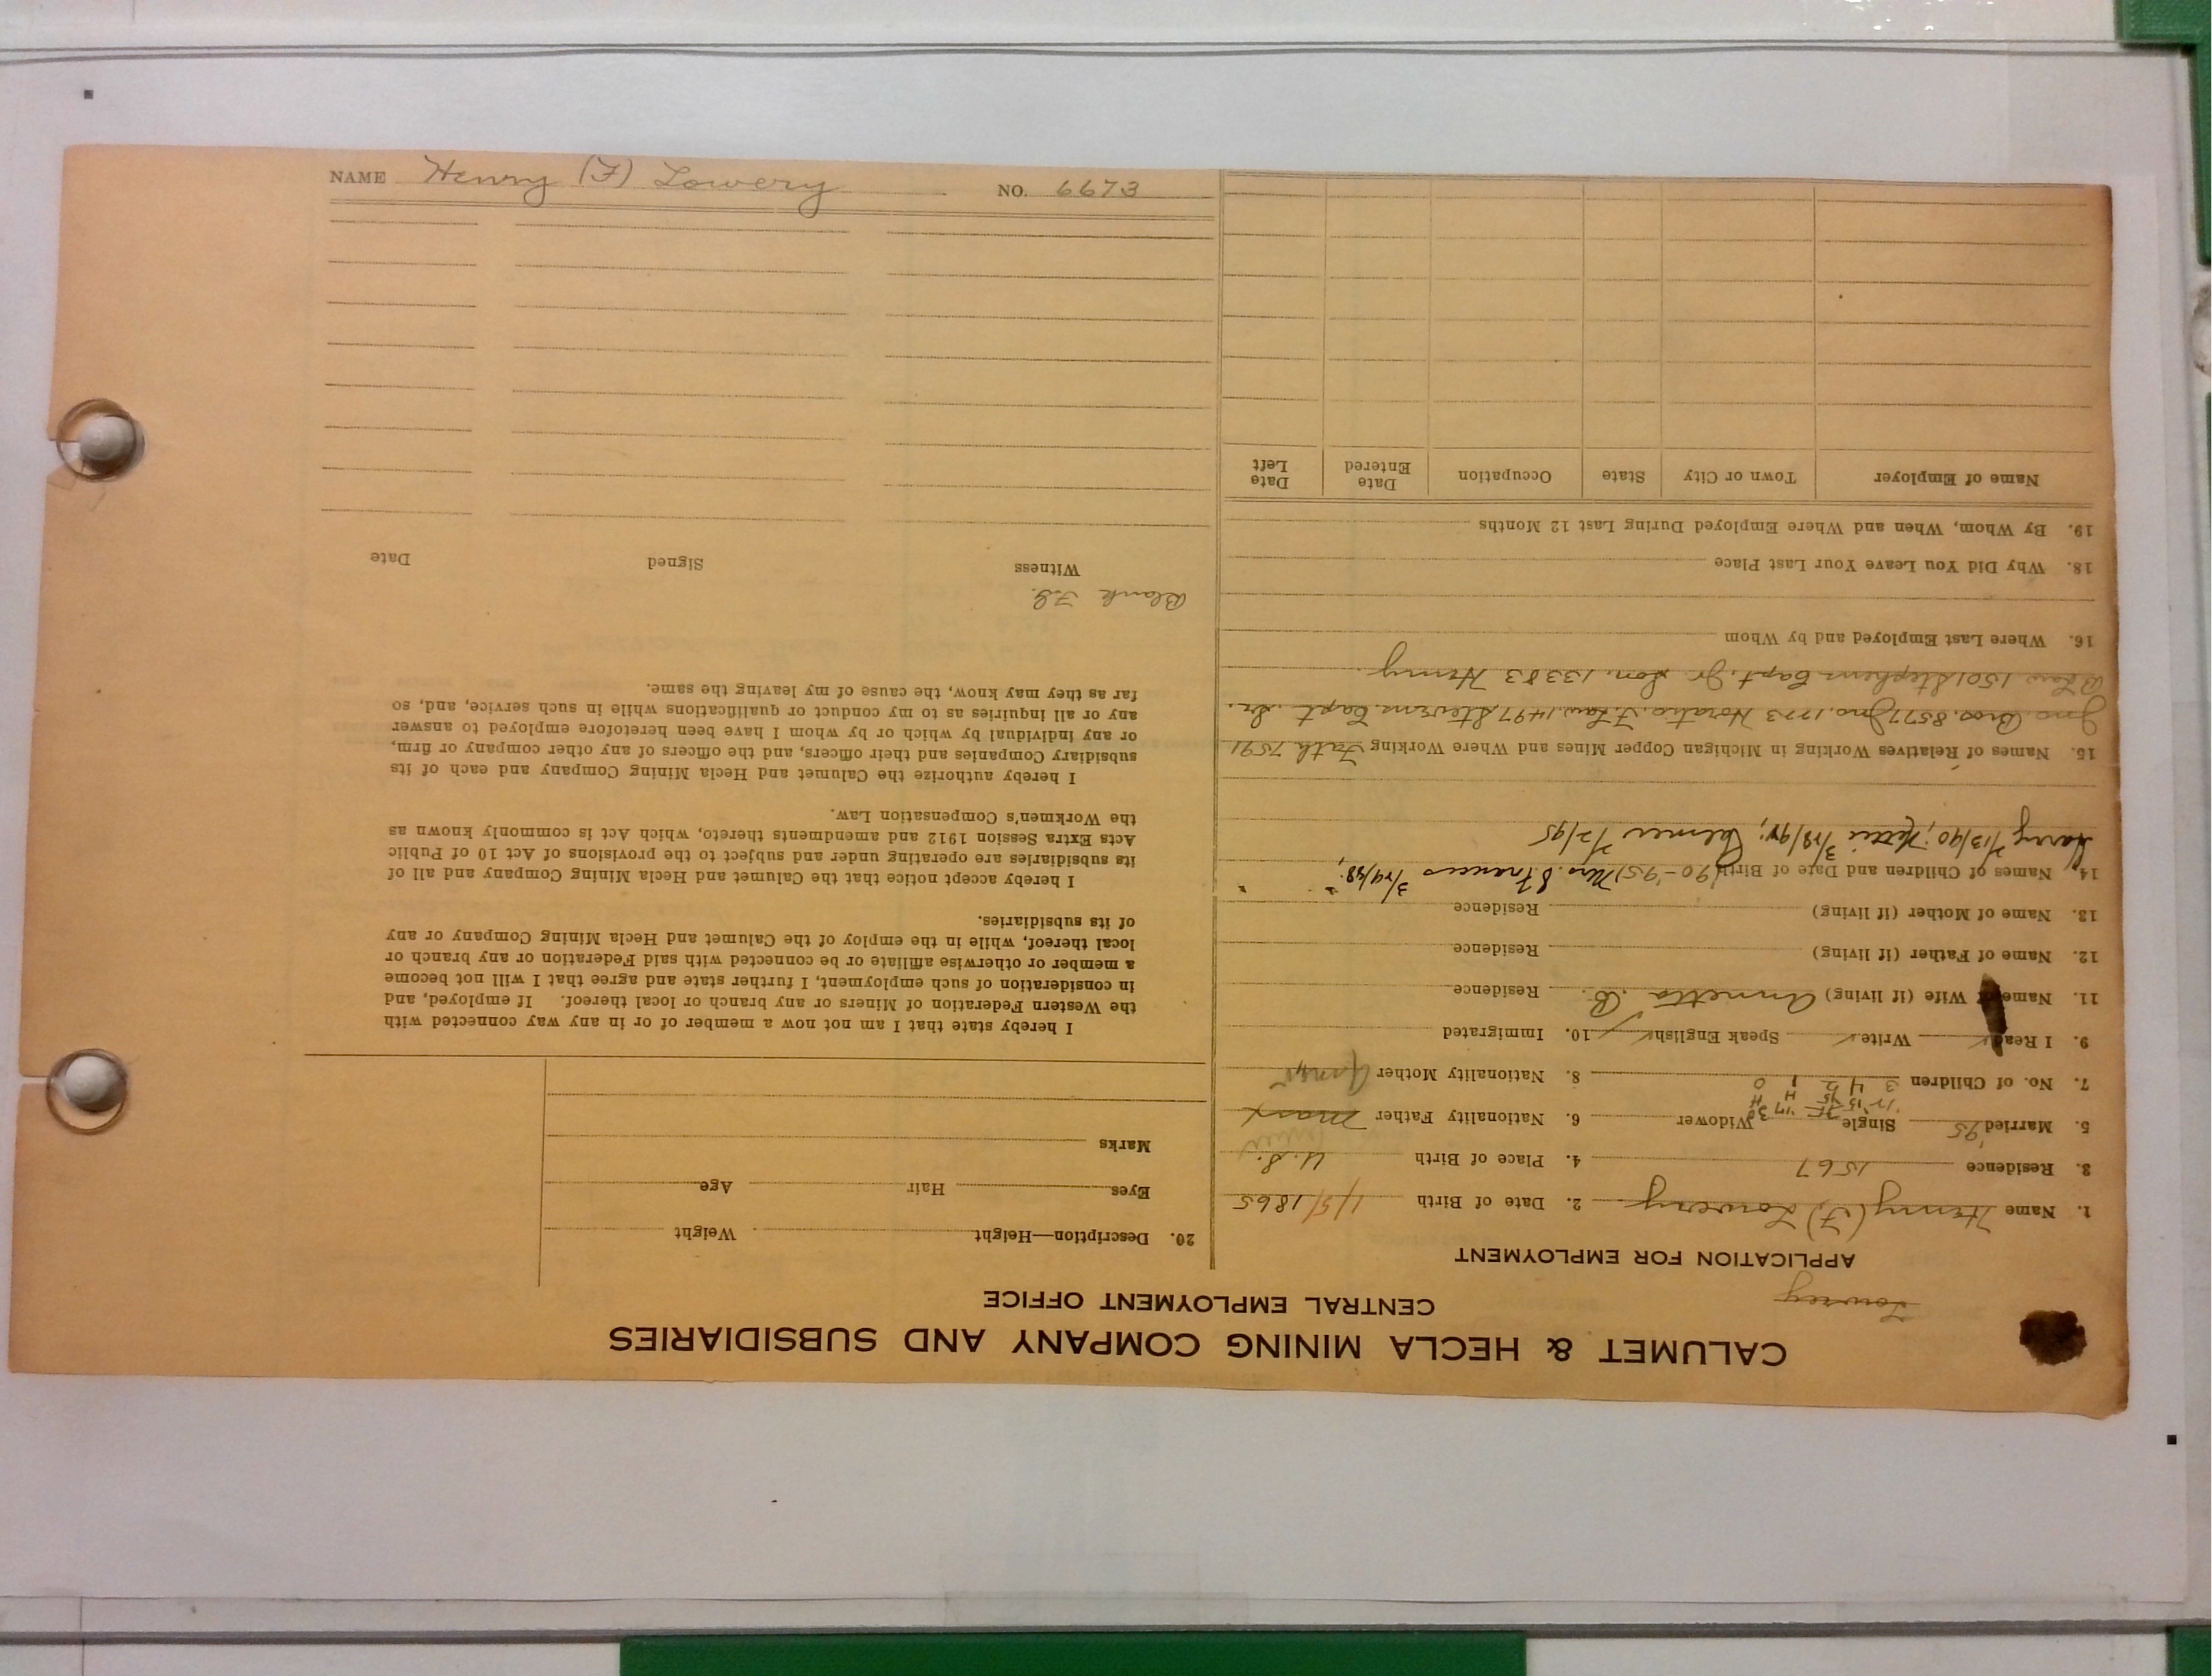 CALUMET & HECLA MINING COMPANY AND SUBSIDIARIES
CENTRAL EMPLOYMENT OFFICE
APPLICATION FOR EMPLOYMENT
1. Name Henry (F) Lowery 2. Date of Birth 1/5/1865
3. Residence 1567 4. Place of Birth U.S.
5. Married '95 Single Widower 6. Nationality Father
7. No. of Children 3 4 2 1 0 8. Nationality Mother
9. I Read ✓ Write ✓ Speak English ✓ 10. Immigrated
11. Name of Wife (if living) Annetta B. Residence
12. Name of Father (if living) Residence
13. Name of Mother (if living) Residence
14. Names of Children and Date of Birth (90-95) Mrs. S Frances
Harry 7/13/90; 3/18/94; 7/2/95
15. Names of Relatives Working in Michigan Copper Mines and Where Working Fath 7591
Jno Bros. 8577 Jno. 1773 Horatio. F. Law. 1497 Stevens. Capt. Sr.
B Law 1501 Stephens Capt. Jr. Son. 13383 Henry.
16. Where Last Employed and by Whom
18. Why Did You Leave Your Last Place
19. By Whom, When and Where Employed During Last 12 Months
Name of Employer Town or City State Occupation Date Entered Date Left
20. Description—Height Weight
Eyes Hair Age
Marks
I hereby state that I am not now a member of or in any way connected with
the Western Federation of Miners or any branch or local thereof. If employed, and
in consideration of such employment, I further state and agree that I will not become
a member or otherwise affiliate or be connected with said Federation or any branch or
local thereof, while in the employ of the Calumet and Hecla Mining Company or any
of its subsidiaries.
I hereby accept notice that the Calumet and Hecla Mining Company and all of
its subsidiaries are operating under and subject to the provisions of Act 10 of Public
Acts Extra Session 1912 and amendments thereto, which Act is commonly known as
the Workmen's Compensation Law.
I hereby authorize the Calumet and Hecla Mining Company and each of its
subsidiary Companies and their officers, and the officers of any other company or firm,
or any individual by which or by whom I have been heretofore employed to answer
any or all inquiries as to my conduct or qualifications while in such service, and, so
far as they may know, the cause of my leaving the same.
Blank
Witness Signed Date
NAME Henry (F) Lowery NO. 6673